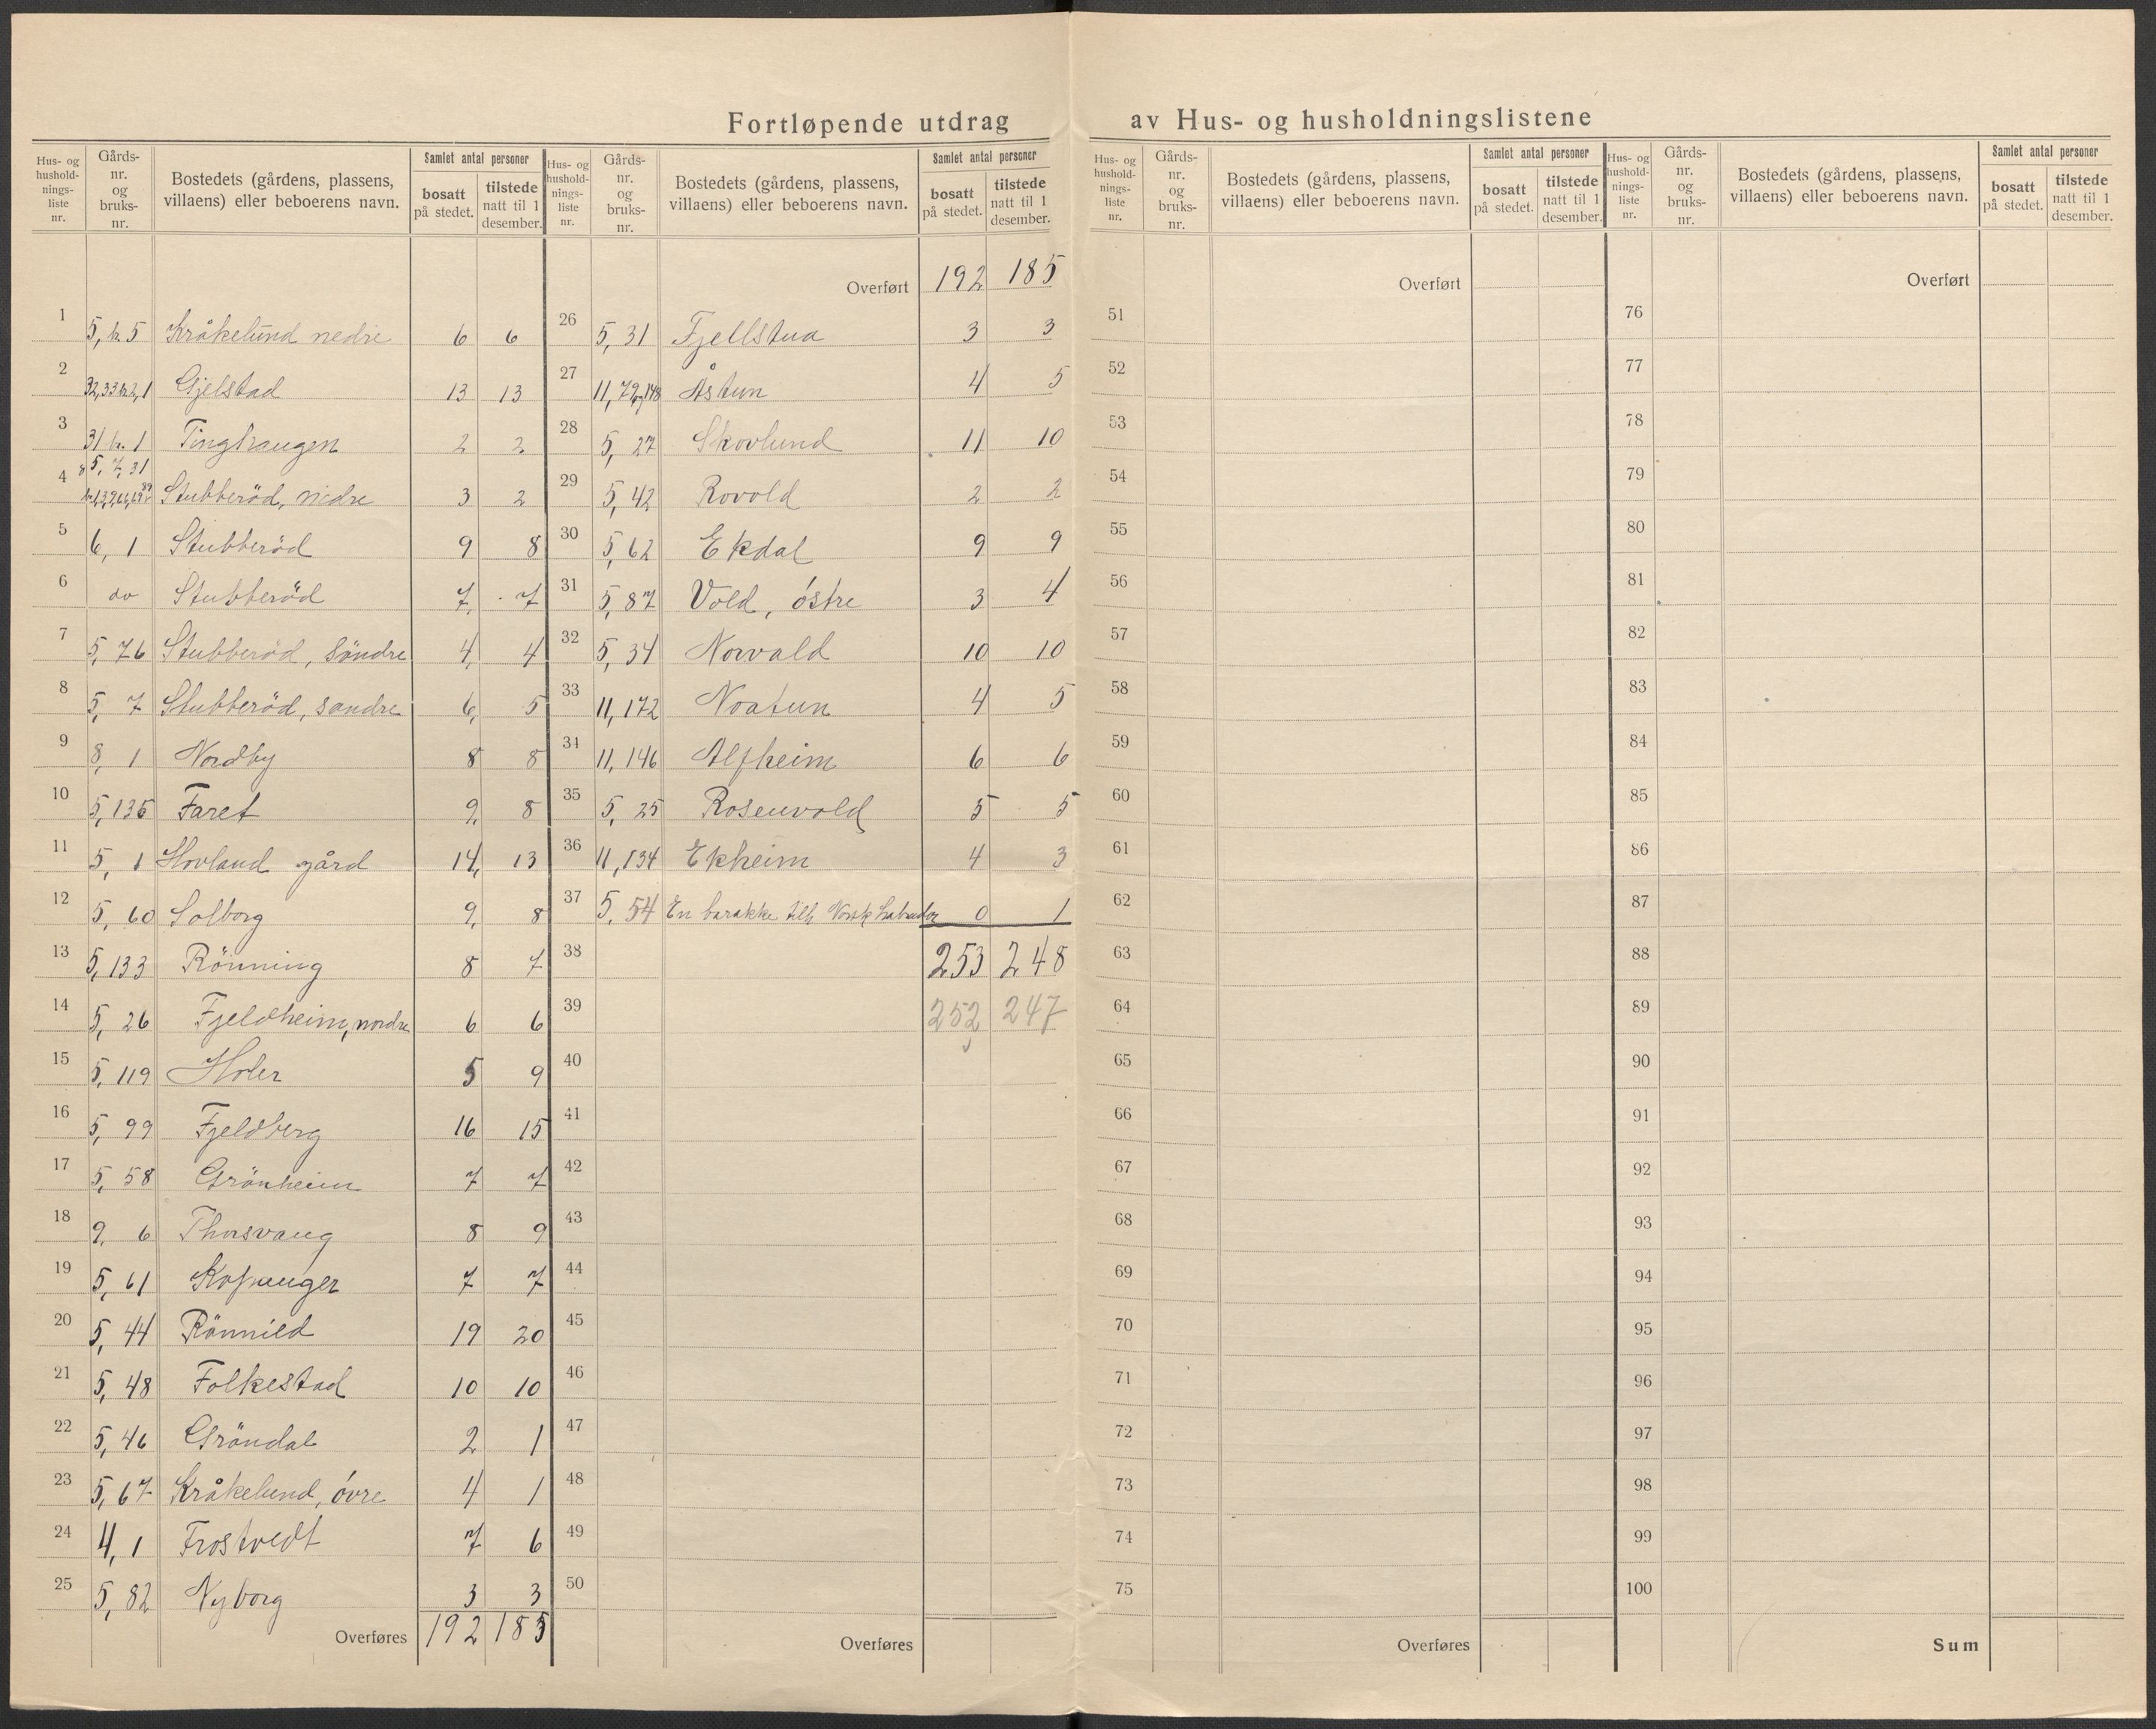 Fortløpende utdrag av Hus- og husholdningslistene
Hus- og hushold-nings-liste nr. Gårds-nr. og bruks-nr. Bostedets (gårdens, plassens, villaens) eller beboerens navn. Samlet antal personer bosatt på stedet. tilstede natt til 1 desember.
1 5, br. 5 Kråkelund nedre 6 6
2 32,33 br. 2,1 Gjelstad 13 13
3 31 br. 1 Tinghaugen 2 2
4 5, 7, 31 Stubberöd, nedre 3 2
5 6, 1 Stubberöd 9 8
6 do Stubberöd 7 7
7 5, 76 Stubberöd, Söndre 4 4
8 5, 7 Stubberöd, söndre 6 5
9 8, 1 Nordby 8 8
10 5, 135 Faret 9 8
11 5, 1 Hovland gård 14 13
12 5, 60 Solborg 9 8
13 5, 133 Rönning 8 7
14 5, 26 Fjeldheim, nordre 6 6
15 5, 119 Holer 5 9
16 5, 99 Fjeldberg 16 15
17 5, 58 Grönheim 7 7
18 9, 6 Thorsvang 8 9
19 5, 61 Kopanger 7 7
20 5, 44 Rönnild 19 20
21 5, 48 Folkestad 10 10
22 5, 46 Gröndal 2 1
23 5, 67 Kråkelund, övre 4 1
24 4, 1 Frostvedt 7 6
25 5, 82 Nyborg 3 3
Overføres 192 185
Hus- og hushold-nings-liste nr. Gårds-nr. og bruks-nr. Bostedets (gårdens, plassens, villaens) eller beboerens navn. Samlet antal personer bosatt på stedet. tilstede natt til 1 desember.
Overført 192 185
26 5, 31 Fjellstua 3 3
27 11, 72 og 148 Åstun 4 5
28 5, 27 Skovlund 11 10
29 5, 42 Rovold 2 2
30 5, 62 Ekdal 9 9
31 5, 87 Vold, östre 3 4
32 5, 34 Norvald 10 10
33 11, 172 Noatun 4 5
34 11, 146 Alfheim 6 6
35 5, 25 Rosenvold 5 5
36 11, 134 Ekheim 4 3
37 5, 54 En barakke tilh. Norsk Labrador 0 1
38 253 248
39 252 247
40
41
42
43
44
45
46
47
48
49
50
Overføres
Hus- og hushold-nings-liste nr. Gårds-nr. og bruks-nr. Bostedets (gårdens, plassens, villaens) eller beboerens navn. Samlet antal personer bosatt på stedet. tilstede natt til 1 desember.
Overført
51
52
53
54
55
56
57
58
59
60
61
62
63
64
65
66
67
68
69
70
71
72
73
74
75
Overføres
Hus- og hushold-nings-liste nr. Gårds-nr. og bruks-nr. Bostedets (gårdens, plassens, villaens) eller beboerens navn. Samlet antal personer bosatt på stedet. tilstede natt til 1 desember.
Overført
76
77
78
79
80
81
82
83
84
85
86
87
88
89
90
91
92
93
94
95
96
97
98
99
100
Sum